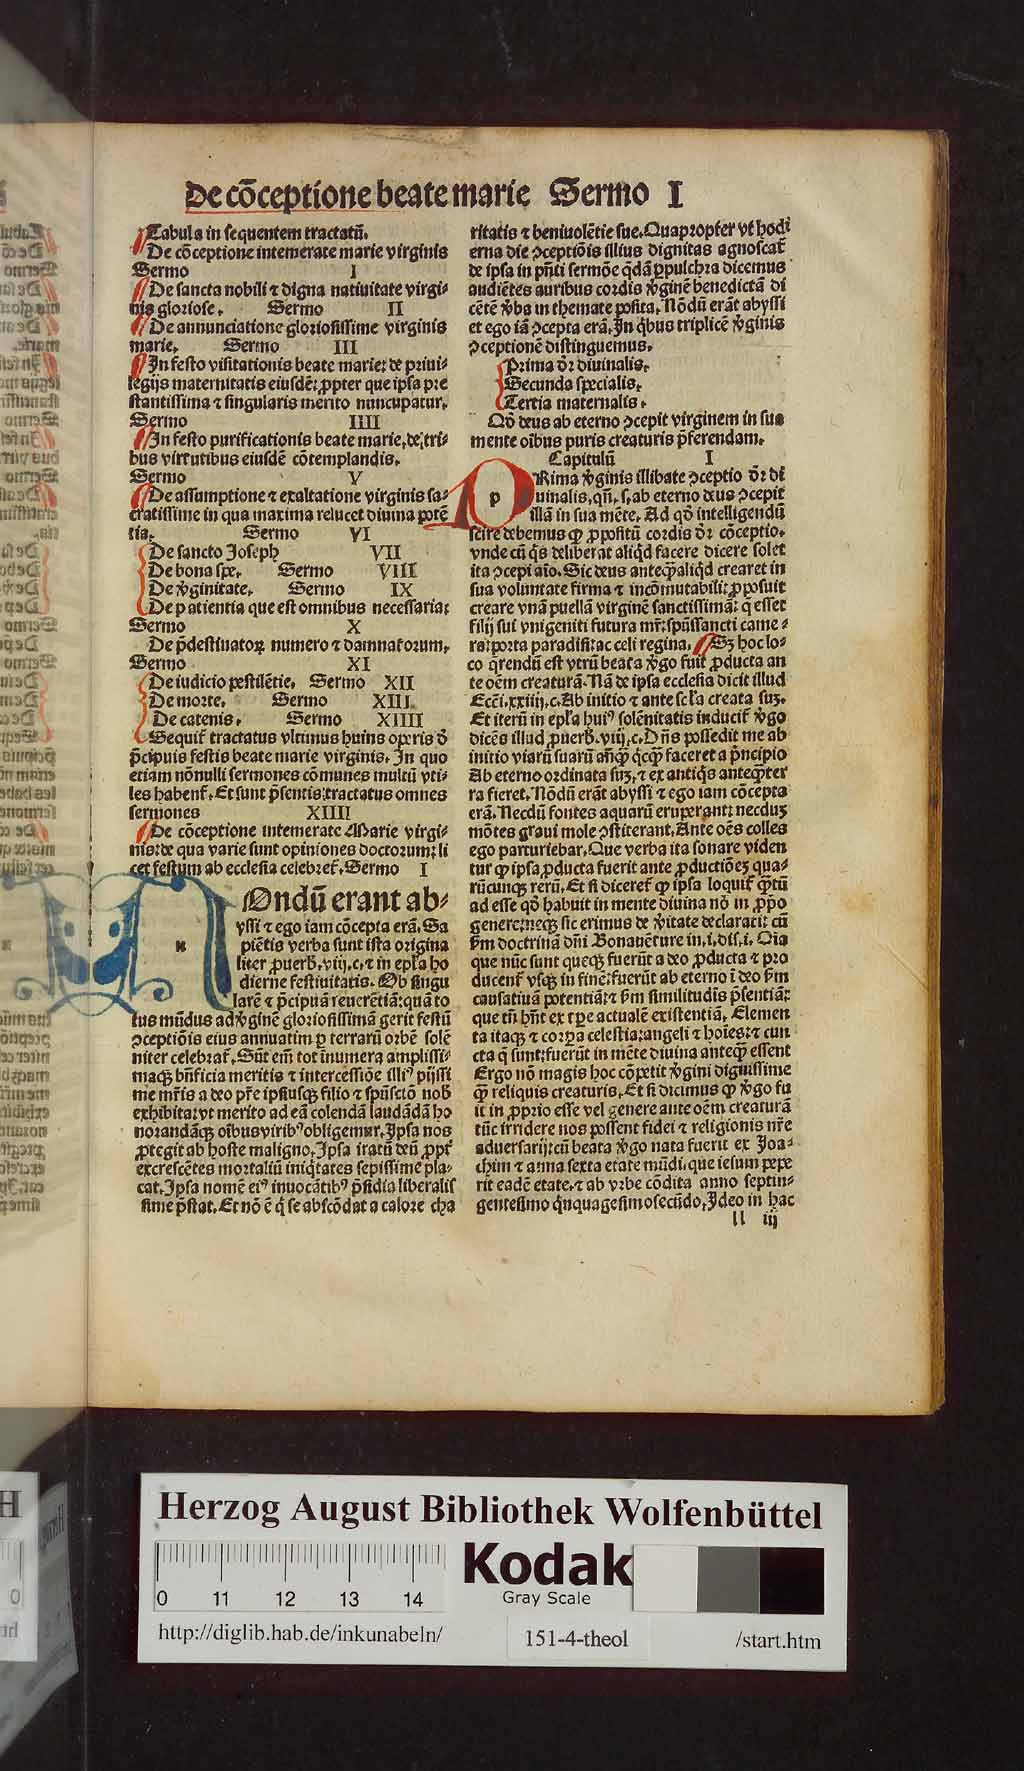 De cōceptione beate marie Sermo I
Tabula in sequentem tractatū.
De cōceptione intemerate marie virginis
Sermo I
De sancta nobili ⁊ digna natiuitate virgi⸗
nis gloriose. Sermo II
De annunciatione gloriosissime virginis
marie. Sermo III
In festo visitationis beate marie: de priui⸗
legijs maternitatis eiusdē: ꝓpter que ipsa pre
stantissima ⁊ singularis merito nuncupatur.
Sermo IIII
In festo purificationis beate marie, de tri⸗
bus virtutibus eiusdē cōtemplandis.
Sermo V
De assumptione ⁊ exaltatione virginis sa⸗
cratissime in qua maxima relucet diuina potē
tia. Sermo VI
De sancto Joseph VII
De bona spe. Sermo VIII
De ꝟginitate. Sermo IX
De patientia que est omnibus necessaria:
Sermo X
De p̄destinatoꝝ numero ⁊ damnatorum.
Sermo XI
De iudicio pestilētie. Sermo XII
De morte. Sermo XIII
De catenis. Sermo XIIII
Sequit᷑ tractatus vltimus huius operis ď
p̄cipuis festis beate marie virginis. In quo
etiam nōnulli sermones cōmunes multū vti⸗
les habent᷑. Et sunt p̄sentis tractatus omnes
sermones XIIII
De cōceptione intemerate Marie virgi⸗
nis: de qua varie sunt opiniones doctorum: li
cet festum ab ecclesia celebret᷑. Sermo I
n Ondū erant ab⸗
yssi ⁊ ego iam cōcepta erā. Sa
piētis verba sunt ista origina
liter ꝓuerb. viij. c. ⁊ in epl'a ho
dierne festiuitatis. Ob singu
larē ⁊ p̄cipuā reuerētiā: quā to
tus mūdus ad ꝟginē gloriosissimā gerit festū
ↄceptiōis eius annuatim ꝑ terrarū orbē solē
niter celebrat᷑. Sūt em̄ tot īnumera amplissi⸗
maqꝫ bn̄ficia meritis ⁊ intercessiōe illiꝰ pijssi
me mr̄is a deo pr̄e ipsiusqꝫ filio ⁊ spūsctō nob᷒
exhibita: vt merito ad eā colendā laudādā ho
norandāqꝫ oībus viribꝰ obligemur. Ipsa nos
ꝓtegit ab hoste maligno. Ipsa iratū deū ꝓpt᷑
excrescētes mortaliū iniq̇tates sepissime pla⸗
cat. Ipsa nomē eiꝰ inuocātibꝰ p̄sidia liberalis
sime p̄stat. Et nō ē q̇ se abscōdat a calore cha
ritatis ⁊ beniuolētie sue. Quapropter vt hodi
erna die ↄceptiōis illius dignitas agnoscat᷑
de ipsa in pn̄ti sermōe q̄dā ꝑpulchra dicemus
audiētes auribus cordis ꝟginē benedictā di
cētē ꝟba in themate posita. Nōdū erāt abyssi
et ego iā ↄcepta erā. In q̇bus triplicē ꝟginis
ↄceptionē distinguemus.
Prima dr̄ diuinalis.
Secunda specialis.
Tertia maternalis.
Qō deus ab eterno ↄcepit virginem in sua
mente oībus puris creaturis p̄ferendam.
Capitulū I
p Rima ꝟginis illibate ↄceptio dr̄ di
uinalis, qn̄. s. ab eterno deus ↄcepit
illā in sua mēte. Ad qō intelligendū
scire debemus ꝙ ꝓpositū cordis dr̄ cōceptio.
vnde cū q̇s deliberat aliqd facere dicere solet
ita ↄcepi aīo. Sic deus anteq̄ꝫ aliqd crearet in
sua voluntate firma ⁊ incōmutabili: ꝓposuit
creare vnā puellā virginē sanctissimā: q̄ esset
filij sui vnigeniti futura mr̄: spūssancti came⸗
ra: porta paradisi: ac celi regina. Sꝫ hoc lo⸗
co q̄rendū est vtrū beata ꝟgo fuit ꝓducta an
te oēm creaturā. Nā de ipsa ecclesia dicit illud
Ecci. xxiiij. c. Ab initio ⁊ ante scl'a creata suꝫ.
Et iterū in epl'a huiꝰ solēnitatis inducit᷑ ꝟgo
dicēs illud ꝓuerb. viij. c. Dn̄s possedit me ab
initio viarū suarū an̄q̄ꝫ q̇cq̄ꝫ faceret a p̄ncipio
Ab eterno ordinata suꝫ. ⁊ ex antiq̇s anteq̄ꝫ ter
ra fieret. Nōdū erāt abyssi ⁊ ego iam cōcepta
erā. Necdū fontes aquarū eruperant: necduꝫ
mōtes graui mole ↄstiterant. Ante oēs colles
ego parturiebar. Que verba ita sonare viden
tur ꝙ ipsa ꝓducta fuerit ante ꝓductiōeꝫ qua⸗
rūcunqꝫ rerū. Et si diceret᷑ ꝙ ipsa loquit᷑ q̄ꝫtū
ad esse qō habuit in mente diuina nō in ꝓpo
genere: neqꝫ sic erimus de ꝟitate declarati: cū
sm̄ doctrinā dn̄i Bonauēture in. i. dis. i. Oīa
que nūc sunt queqꝫ fuerūt a deo ꝓducta ⁊ pro
ducent᷑ vsqꝫ in finē: fuerūt ab eterno ī deo sm̄
causatiuā potentiā: ⁊ sm̄ similitudīs p̄sentiā:
que tn̄ hn̄t ex tp̄e actualē existentiā. Elemen
ta itaqꝫ ⁊ corꝑa celestia: angeli ⁊ hoīes: ⁊ cun
cta q̄ sunt: fuerūt in mēte diuina anteq̄ꝫ essent
Ergo nō magis hoc cōpetit ꝟgini dignissime
q̄ꝫ reliquis creaturis. Et si dicimus ꝙ ꝟgo fu
it in ꝓprio esse vel genere ante oēm creaturā
tūc irridere nos possent fidei ⁊ religionis nr̄e
aduersarij: cū beata ꝟgo nata fuerit ex Joa⸗
chim ⁊ anna sexta etate mūdi. que iesum pepe
rit eadē etate. ⁊ ab vrbe cōdita anno septin⸗
gentesimo q̇nquagesimosecūdo. Ideo in hac
ll iij
Herzog August Bibliothek Wolfenbüttel
0 11 12 13 14
Kodak
Gray Scale
http://diglib.hab.de/inkunabeln/
151-4-theol
/start.htm